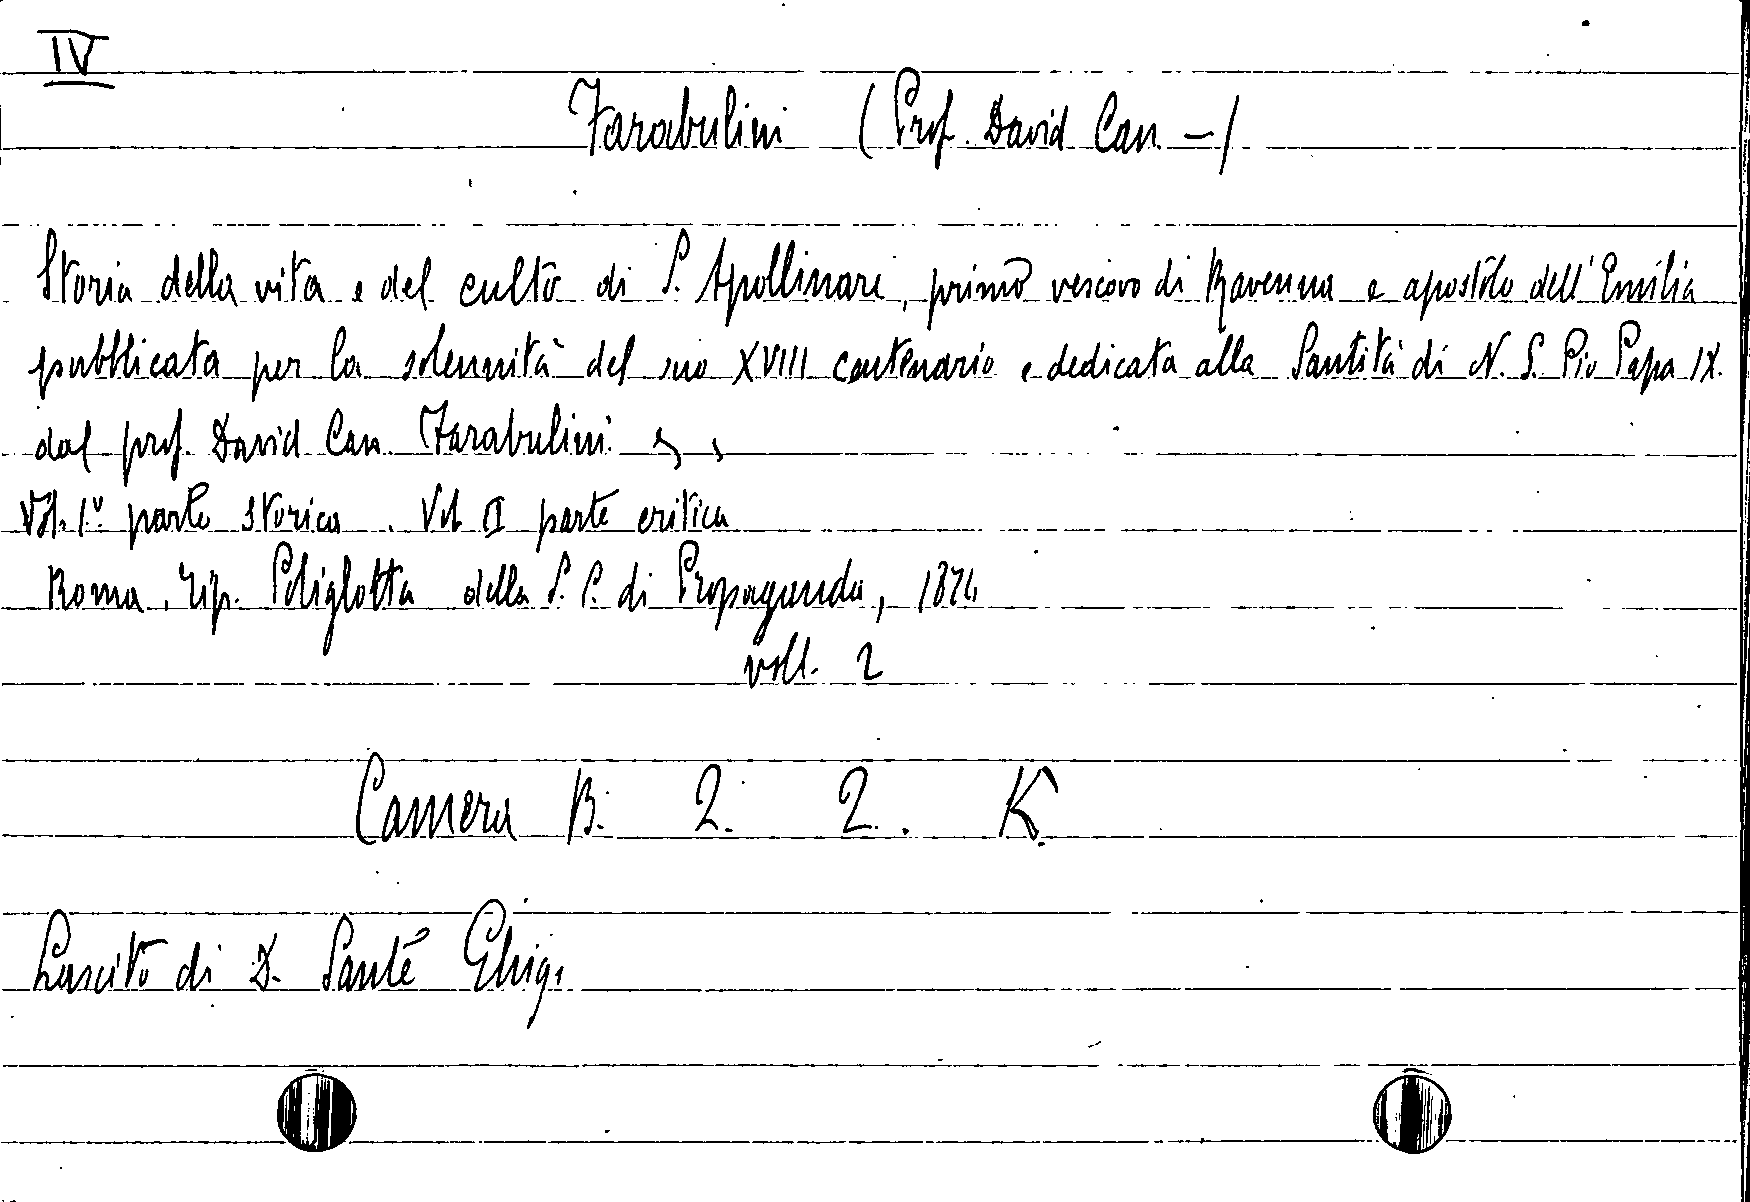 IV
Farabulini (Prof. David Can. -)
Storia della vita e del culto di S. Apollinare, primo vescovo di Ravenna e apostolo dell'Emilia
pubblicata per la solennità del suo XVIII centenario e dedicata alla Santità di N. S. Pio Papa IX.
dal prof. David Can. Farabulini
Vol. 1º parte storica. Vol II parte critica
Roma, Tip. Poliglotta della S. C. di Propaganda, 1874
voll. 2
Camera B. 2. 2. K.
Lascito di D. Sante Ghigi